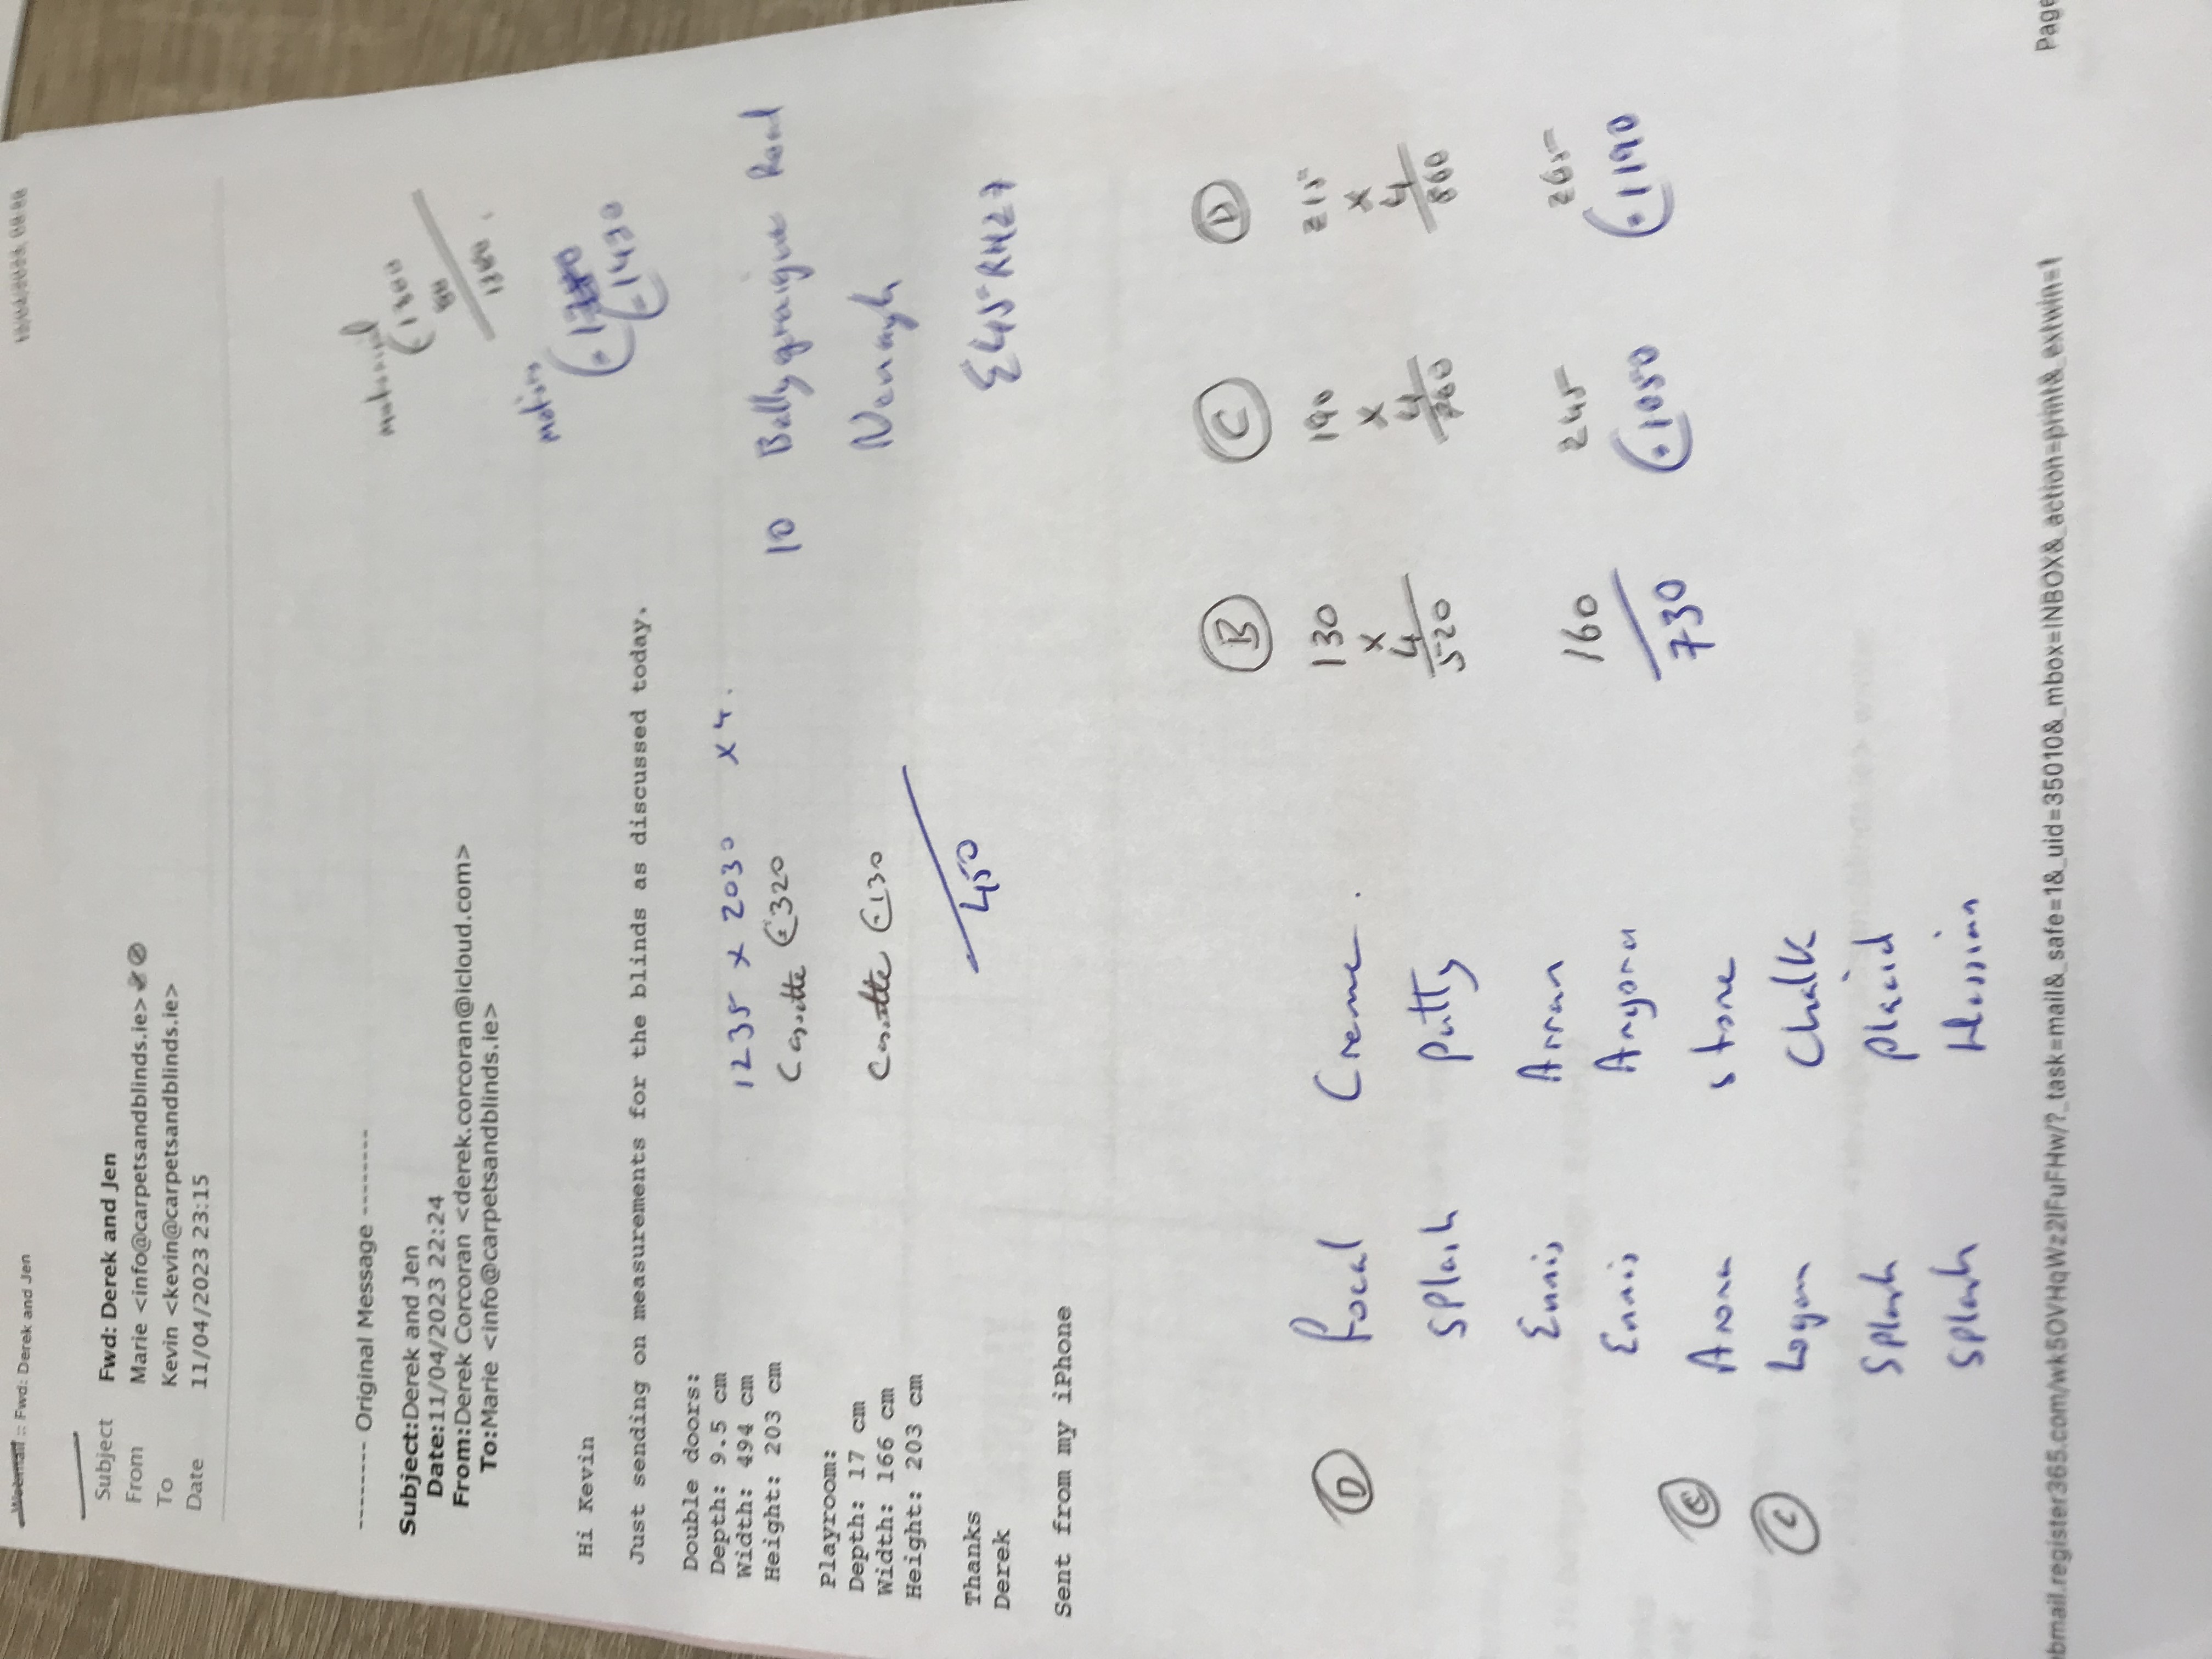 Webmail :: Fwd: Derek and Jen
Subject Fwd: Derek and Jen
From Marie <info@carpetsandblinds.ie>
To Kevin <kevin@carpetsandblinds.ie>
Date 11/04/2023 23:15
-------- Original Message --------
Subject:Derek and Jen
Date:11/04/2023 22:24
From:Derek Corcoran <derek.corcoran@icloud.com>
To:Marie <info@carpetsandblinds.ie>
€1300
80
1380
€1490
Hi Kevin
Just sending on measurements for the blinds as discussed today.
Double doors:
Depth: 9.5 cm
Width: 494 cm
Height: 203 cm
1235 x 2030 x 4.
Cassette €320
10 Ballygraigue Road
Nenagh
E45 RH27
Playroom:
Depth: 17 cm
Width: 166 cm
Height: 203 cm
Cassette €130
450
Thanks
Derek
Sent from my iPhone
B C D
130 190 215
x x x
4 4 4
520 760 860
160 245 265
730 €1050 €1190
D Focal Creme.
Splash Putty
Ennis Arran
Ennis Angora
C Arona Stone
C Logan Chalk
Splash Placid
Splash Hessian
bmail.register365.com/wk5OVHqWz2IFuFHw/?_task=mail&_safe=1&_uid=35010&_mbox=INBOX&_action=print&_extwin=1
Page